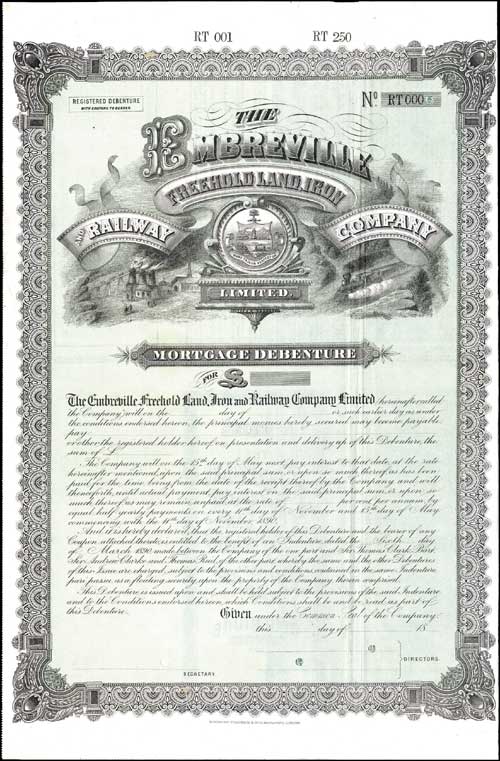 RT 001 RT 250
REGISTERED DEBENTURE
WITH COUPONS TO BEARER
No RT000
THE
EMBREVILLE
FREEHOLD LAND, IRON
AND RAILWAY COMPANY
LIMITED.
MORTGAGE DEBENTURE
FOR £
The Embreville Freehold Land, Iron and Railway Company Limited (hereinafter called
the Company) will on the day of or such earlier day as under
the conditions endorsed hereon, the principal monies hereby secured may become payable,
pay
or other the registered holder hereof, on presentation and delivery up of this Debenture, the
sum of £
The Company will on the 15th day of May next pay interest to that date, at the rate
hereinafter mentioned, upon the said principal sum, or upon so much thereof as has been
paid for the time being from the date of the receipt thereof by the Company and will
thenceforth, until actual payment, pay interest on the said principal sum, or upon so
much thereof as may remain unpaid at the rate of per cent per annum, by
equal half yearly payments on every 11th day of November and 15th day of May
commencing with the 11th day of November 1890.
And it is hereby declared, that the registered holder of this Debenture and the bearer of any
Coupon attached thereto, is entitled to the benefit of an Indenture, dated the Sixth day
of March 1890, made between the Company of the one part and Sir Thomas Clark Bart.
Sir Andrew Clarke and Thomas of the other part, whereby the same and the other Debentures
of this Issue are charged, subject to the provisions and conditions, contained in the same Indenture,
pari passu, as a floating security upon the property of the Company therein comprised.
This Debenture is issued upon and shall be held subject to the provisions of the said Indenture
and to the Conditions endorsed hereon, which Conditions shall be and be read as part of
this Debenture.
Given under the Common Seal of the Company
this day of 18
DIRECTORS.
SECRETARY.